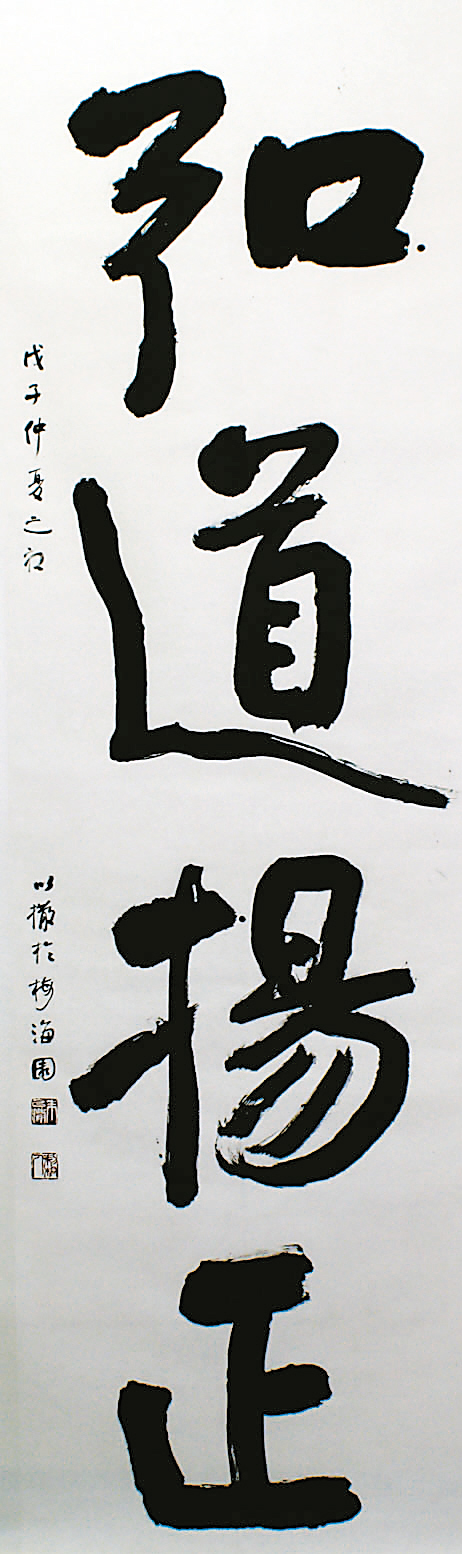 弘道揚正
戊子仲夏之初
以於梅海園